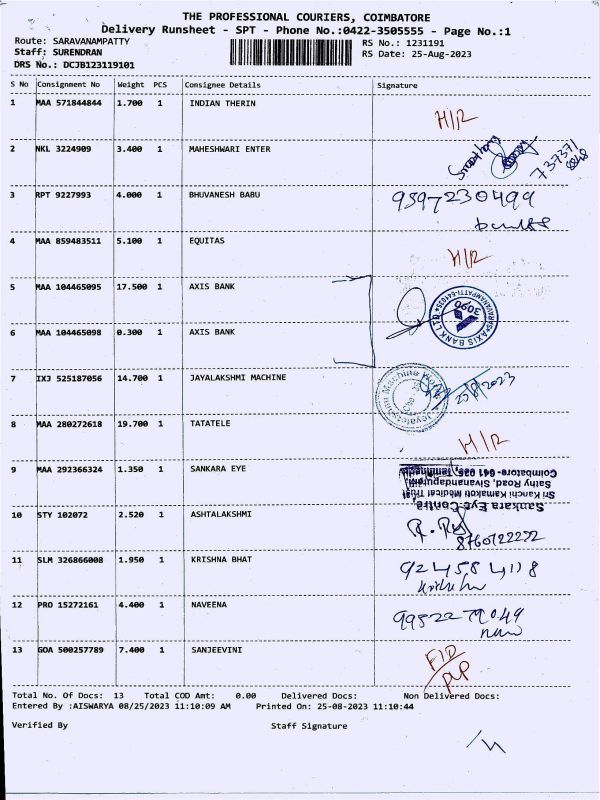 THE PROFESSIONAL COURIERS, COIMBATORE
Delivery Runsheet - SPT - Phone No.:0422-3505555 - Page No.:1
Route: SARAVANAMPATTY RS No.: 1231191
Staff: SURENDRAN RS Date: 25-Aug-2023
DRS No.: DCJB123119101
S No Consignment No Weight PCS Consignee Details Signature
1 MAA 571844844 1.700 1 INDIAN THERIN H/R
2 NKL 3224909 3.400 1 MAHESHWARI ENTER
3 RPT 9227993 4.000 1 BHUVANESH BABU 9597230499
4 MAA 859483511 5.100 1 EQUITAS H/R
5 MAA 104465095 17.500 1 AXIS BANK
6 MAA 104465098 0.300 1 AXIS BANK
AXIS BANK LTD SARAVANAMPATTI-641035 3090
7 IXJ 525187056 14.700 1 JAYALAKSHMI MACHINE
8 MAA 280272618 19.700 1 TATATELE H/R
9 MAA 292366324 1.350 1 SANKARA EYE
Sankara Eye Centre
Sri Kanchi Kamakoti Medical Trust
Sathy Road, Sivanandapuram,
Coimbatore- 641 035, Tamilnadu
10 STY 102072 2.520 1 ASHTALAKSHMI
8760122222
11 SLM 326866008 1.950 1 KRISHNA BHAT 92458 4118
12 PRO 15272161 4.400 1 NAVEENA
13 GOA 500257789 7.400 1 SANJEEVINI
Total No. Of Docs: 13 Total COD Amt: 0.00 Delivered Docs: Non Delivered Docs:
Entered By :AISWARYA 08/25/2023 11:10:09 AM Printed On: 25-08-2023 11:10:44
Verified By Staff Signature